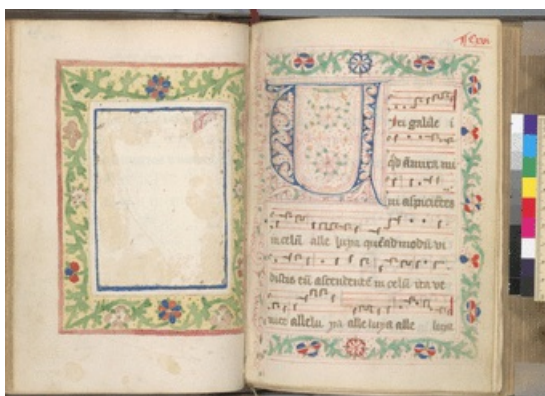 Uiri galile i
qd amira mi
ni aspiciētes
in celū alle luya quēadmodū vi
distis eū ascendentē in celū ita ve
niet allelu ya alleluya alle luya